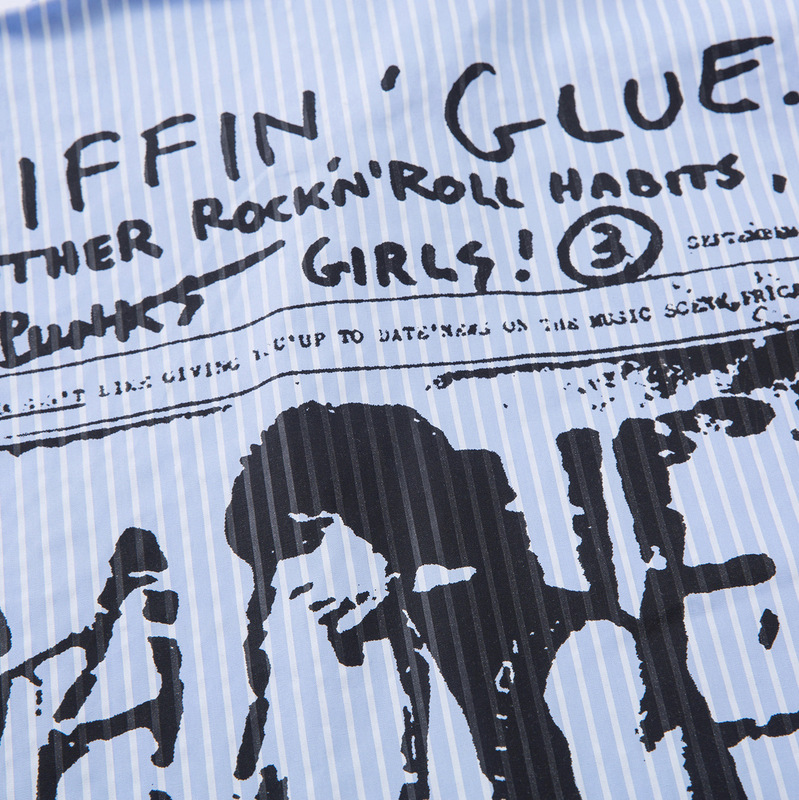 IFFIN' GLUE.
THER ROCK'N'ROLL HABITS,
PUNKS GIRLS! ③ SEPTEMBER
LIKE GIVING UP TO DATE NEWS ON THE MUSIC SCENE